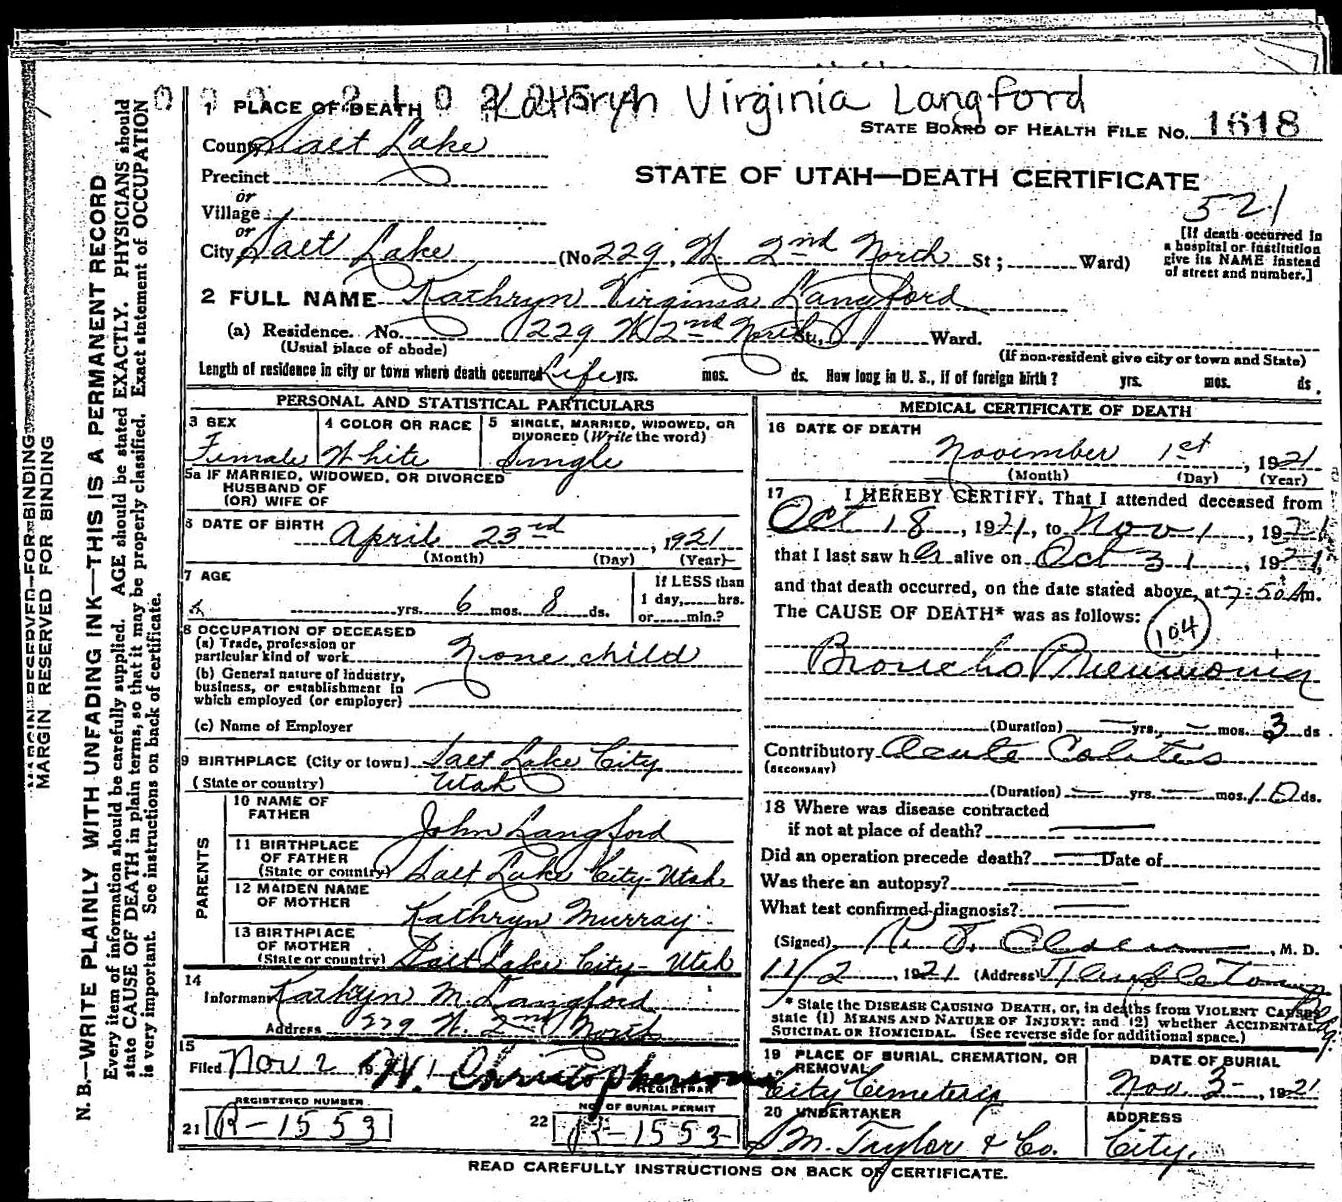 Kathryn Virginia Langford
1 PLACE OF DEATH
STATE BOARD OF HEALTH FILE No. 1618
County Salt Lake
Precinct
STATE OF UTAH—DEATH CERTIFICATE
or
Village
521
or
City Salt Lake (No 229, W. 2nd North St; Ward)
[If death occurred in a hospital or institution give its NAME instead of street and number.]
2 FULL NAME Kathryn Virginia Langford
(a) Residence. No. 229 W 2nd North St., Ward.
(Usual place of abode)
(If non-resident give city or town and State)
Length of residence in city or town where death occurred Life yrs. mos. ds. How long in U. S., if of foreign birth? yrs. mos. ds.
PERSONAL AND STATISTICAL PARTICULARS
3 SEX
Female
4 COLOR OR RACE
White
5 SINGLE, MARRIED, WIDOWED, OR DIVORCED (Write the word)
Single
5a IF MARRIED, WIDOWED, OR DIVORCED
HUSBAND OF
(OR) WIFE OF
6 DATE OF BIRTH April 23rd, 1921
(Month) (Day) (Year)
7 AGE
yrs. 6 mos. 8 ds.
If LESS than
1 day, hrs.
or min.?
8 OCCUPATION OF DECEASED
(a) Trade, profession or
particular kind of work None child
(b) General nature of industry,
business, or establishment in
which employed (or employer)
(c) Name of Employer
9 BIRTHPLACE (City or town) Salt Lake City
(State or country) Utah
PARENTS
10 NAME OF
FATHER John Langford
11 BIRTHPLACE
OF FATHER
(State or country) Salt Lake City-Utah
12 MAIDEN NAME
OF MOTHER Kathryn Murray
13 BIRTHPLACE
OF MOTHER
(State or country) Salt Lake City- Utah
14
Informant Kathryn M. Langford
Address 229 W. 2nd North
15
Filed Nov 2 Christopherson
REGISTRAR
REGISTERED NUMBER
21 R-1553
NO. OF BURIAL PERMIT
22 R-1553
MEDICAL CERTIFICATE OF DEATH
16 DATE OF DEATH
November 1st, 1921
(Month) (Day) (Year)
17 I HEREBY CERTIFY. That I attended deceased from
Oct 18, 1921, to Nov 1, 1921
that I last saw her alive on Oct 31, 1921,
and that death occurred, on the date stated above, at 7:50 Am.
The CAUSE OF DEATH* was as follows:
104
Broncho Pneumonia
(Duration) — yrs. — mos. 3 ds
Contributory Acute Colitis
(SECONDARY)
(Duration) — yrs. — mos. 10 ds.
18 Where was disease contracted
if not at place of death? —
Did an operation precede death? — Date of
Was there an autopsy? —
What test confirmed diagnosis? —
(Signed) M. D.
11/2, 1921 (Address)
* State the DISEASE CAUSING DEATH, or, in deaths from VIOLENT CAUSES
state (1) MEANS AND NATURE OF INJURY: and (2) whether ACCIDENTAL,
SUICIDAL OR HOMICIDAL. (See reverse side for additional space.)
19 PLACE OF BURIAL, CREMATION, OR
REMOVAL
City Cemetery
DATE OF BURIAL
Nov. 3-, 1921
20 UNDERTAKER
S. M. Taylor & Co.
ADDRESS
City.
READ CAREFULLY INSTRUCTIONS ON BACK OF CERTIFICATE.
MARGIN RESERVED FOR BINDING
MARGIN RESERVED FOR BINDING
N. B.—WRITE PLAINLY WITH UNFADING INK—THIS IS A PERMANENT RECORD
Every item of information should be carefully supplied. AGE should be stated EXACTLY. PHYSICIANS should
state CAUSE OF DEATH in plain terms, so that it may be properly classified. Exact statement of OCCUPATION
is very important. See instructions on back of certificate.